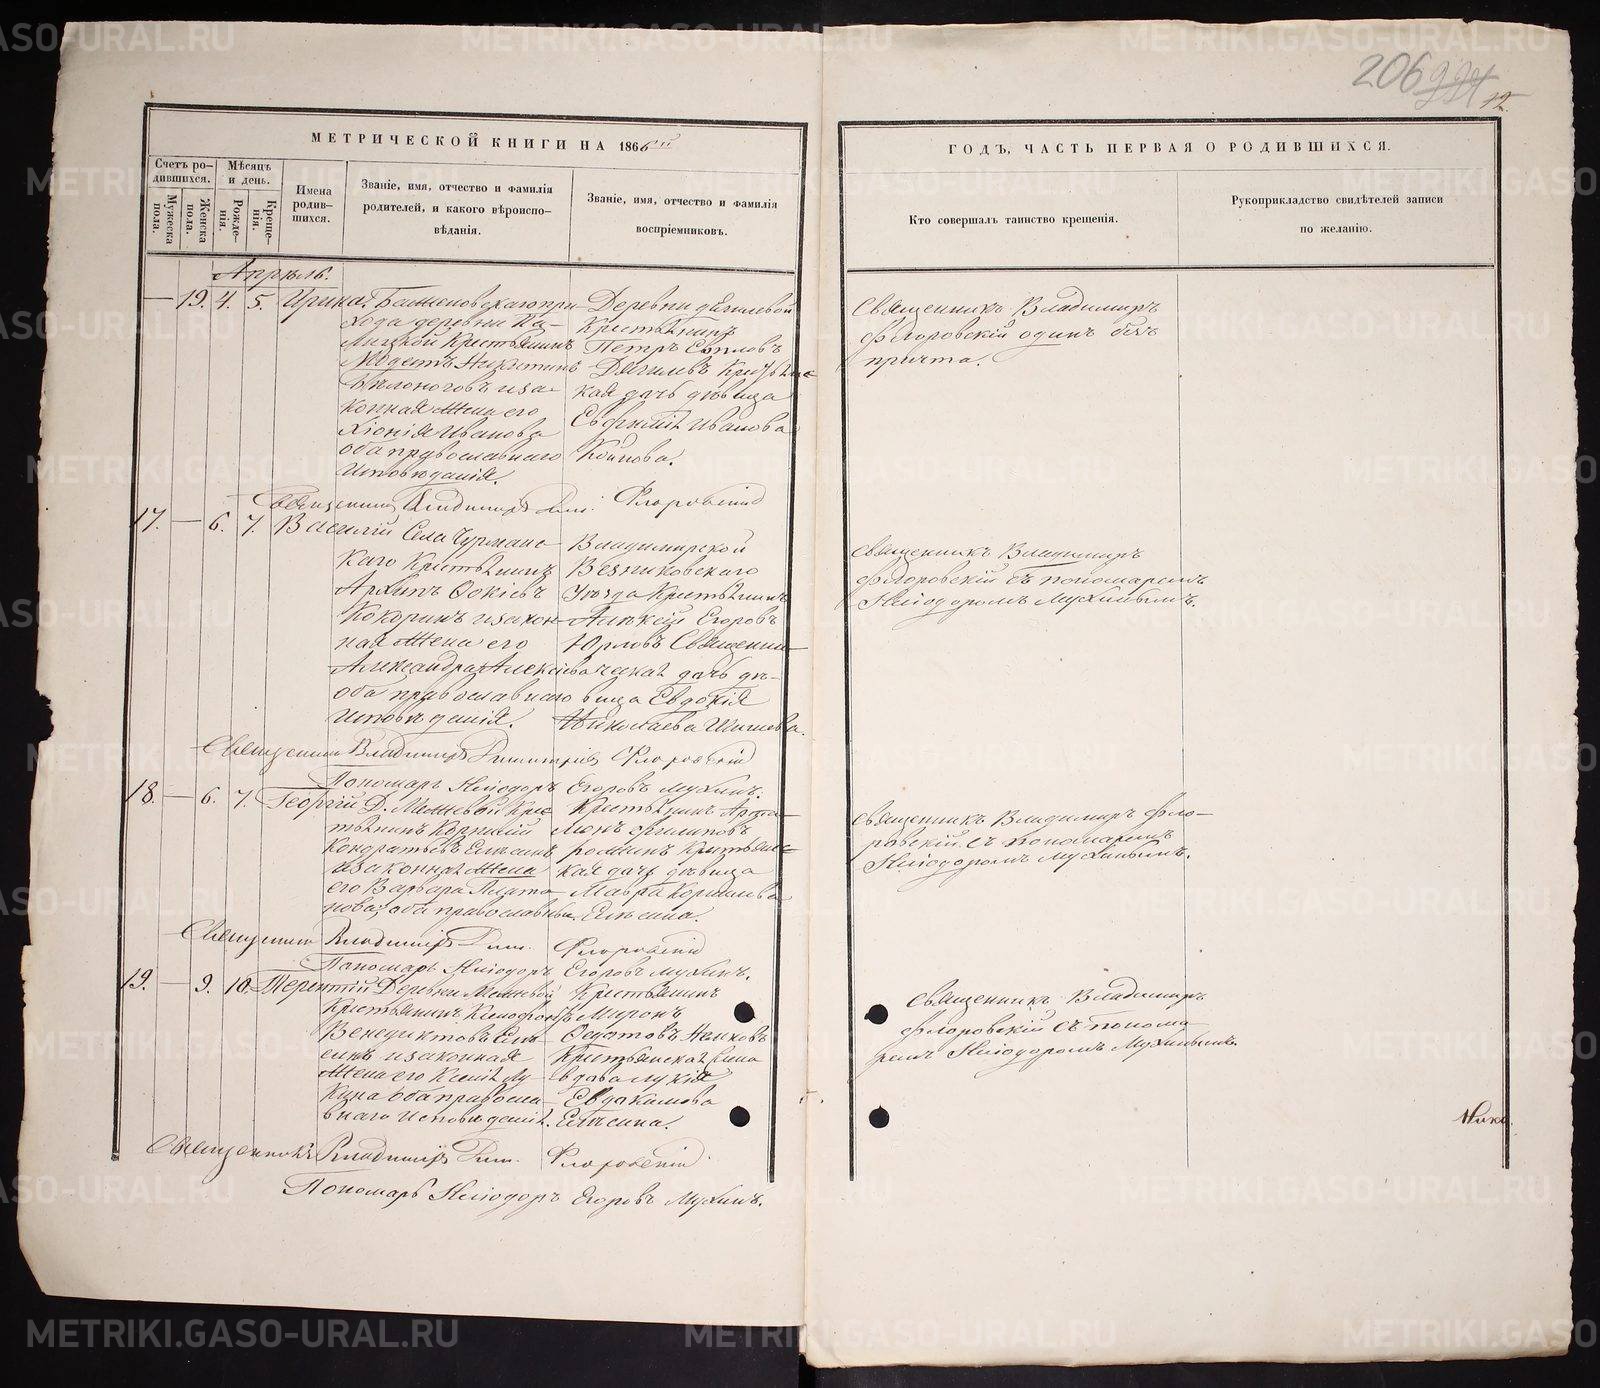 206 994
12.
МЕТРИЧЕСКОЙ КНИГИ НА 1866й
Счетъ ро-
дившихся.
Мужеска
пола.
Женска
пола.
Мѣсяцъ
и день.
Рожде-
нія.
Креще-
нія.
Имена
родив-
шихся.
Званіе, имя, отчество и фамилія
родителей, и какого вѣроиспо-
вѣданія.
Званіе, имя, отчество и фамилія
воспріемниковъ.
Апрѣль.
— 19. 4. 5. Ирина
хода деревни
крестьянинъ
Модестъ Никитинъ
Бѣлоноговъ иза-
конная жена его
Хіонія Иванова
оба православнаго
исповѣданія.
Деревни
Крестьянинъ
Петръ
Крестьянс-
кая дочь дѣвица
Евфимія Иванова
Священникъ Владиміръ Дим. Флоровскій
17. — 6. 7. Василій
Села
каго Крестьянинъ
Архипъ Фокіевъ
Кокоринъ и закон-
ная жена его
Александра Алексіева
оба православнаго
исповѣданія.
Владимирской
Везниковскаго
уѣзда Крестьянинъ
Алексѣй Егоровъ
Юрловъ Священни-
ческая дочь дѣ-
вица Евдокія
Николаева
Священникъ Владиміръ Димитріевъ Флоровскій
Пономарь Иліодоръ Егоровъ Мухинъ.
18. — 6. 7. Георгій
Д. Крес-
тьянинъ Корнилій
Кондратьевъ Елѣсинъ
и законная жена
его Варвара Плато-
нова, оба православны.
Крестьянинъ Арта-
монъ Филиповъ
Крестьянс-
кая дочь дѣвица
Мавра Корнилова
Елѣсина.
Священникъ Владиміръ Дим. Флоровскій
Пономарь Иліодоръ Егоровъ Мухинъ.
19. — 9. 10. Терентій
Деревни
Крестьянинъ Ксенофонтъ
Венедиктовъ Елѣ-
синъ и законная
жена его Ксенія Лу-
кина оба правосла-
внаго исповѣданія.
Крестьянинъ
Миронъ
Федотовъ
Крестьянская
вдова Лукія
Евдокимова
Елѣсина.
Священникъ Владиміръ Дим. Флоровскій.
Пономарь Иліодоръ Егоровъ Мухинъ.
ГОДЪ, ЧАСТЬ ПЕРВАЯ О РОДИВШИХСЯ.
Кто совершалъ таинство крещенія.
Рукоприкладство свидѣтелей записи
по желанію.
Священникъ Владиміръ
Флоровскій одинъ безъ
причта.
Священникъ Владиміръ
Флоровскій съ пономаремъ
Иліодоромъ Мухинымъ.
Священникъ Владиміръ Фло-
ровскій съ пономаремъ
Иліодоромъ Мухинымъ.
Священникъ Владиміръ
Флоровскій съ понома-
ремъ Иліодоромъ Мухинымъ.
METRIKI.GASO-URAL.RU